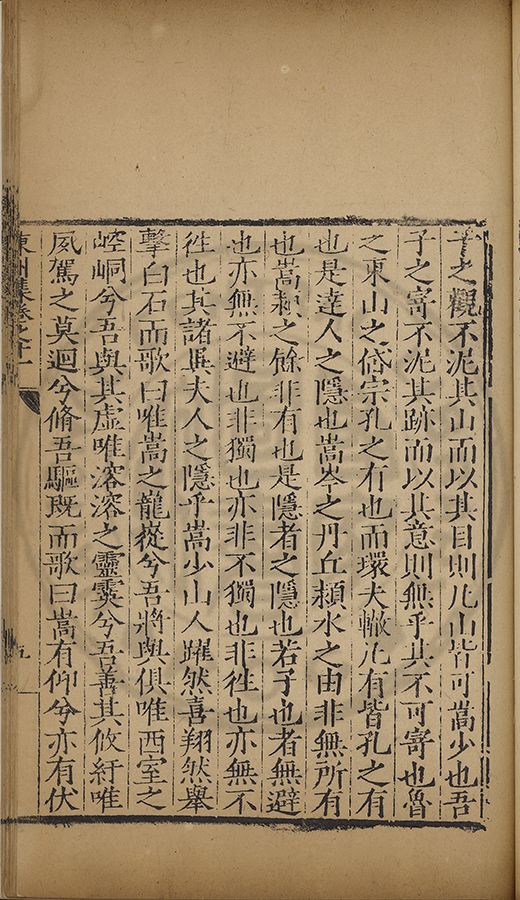 子之觀不泥其山而以其目則凢山皆可嵩少也吾
子之寄不泥其跡而以其意則無乎其不可寄也魯
之東山之岱宗孔之有也而環夫轍凢有皆孔之有
也是達人之隱也嵩岑之丹丘潁水之由非無所有
也嵩潁之餘非有也是隱者之隱也若子也者無避
也亦無不避也非獨也亦非不獨也非徃也亦無不
徃也其諸異夫人之隱乎嵩少山人躍然喜翔然舉
擊白石而歌曰唯嵩之龍嵸兮吾將與俱唯西室之
崆峒兮吾與其虛唯溶溶之靈霙兮吾善其攸紆唯
夙駕之莫迴兮脩吾驅既而歌曰嵩有仰兮亦有伏
東洲集卷之十一
九